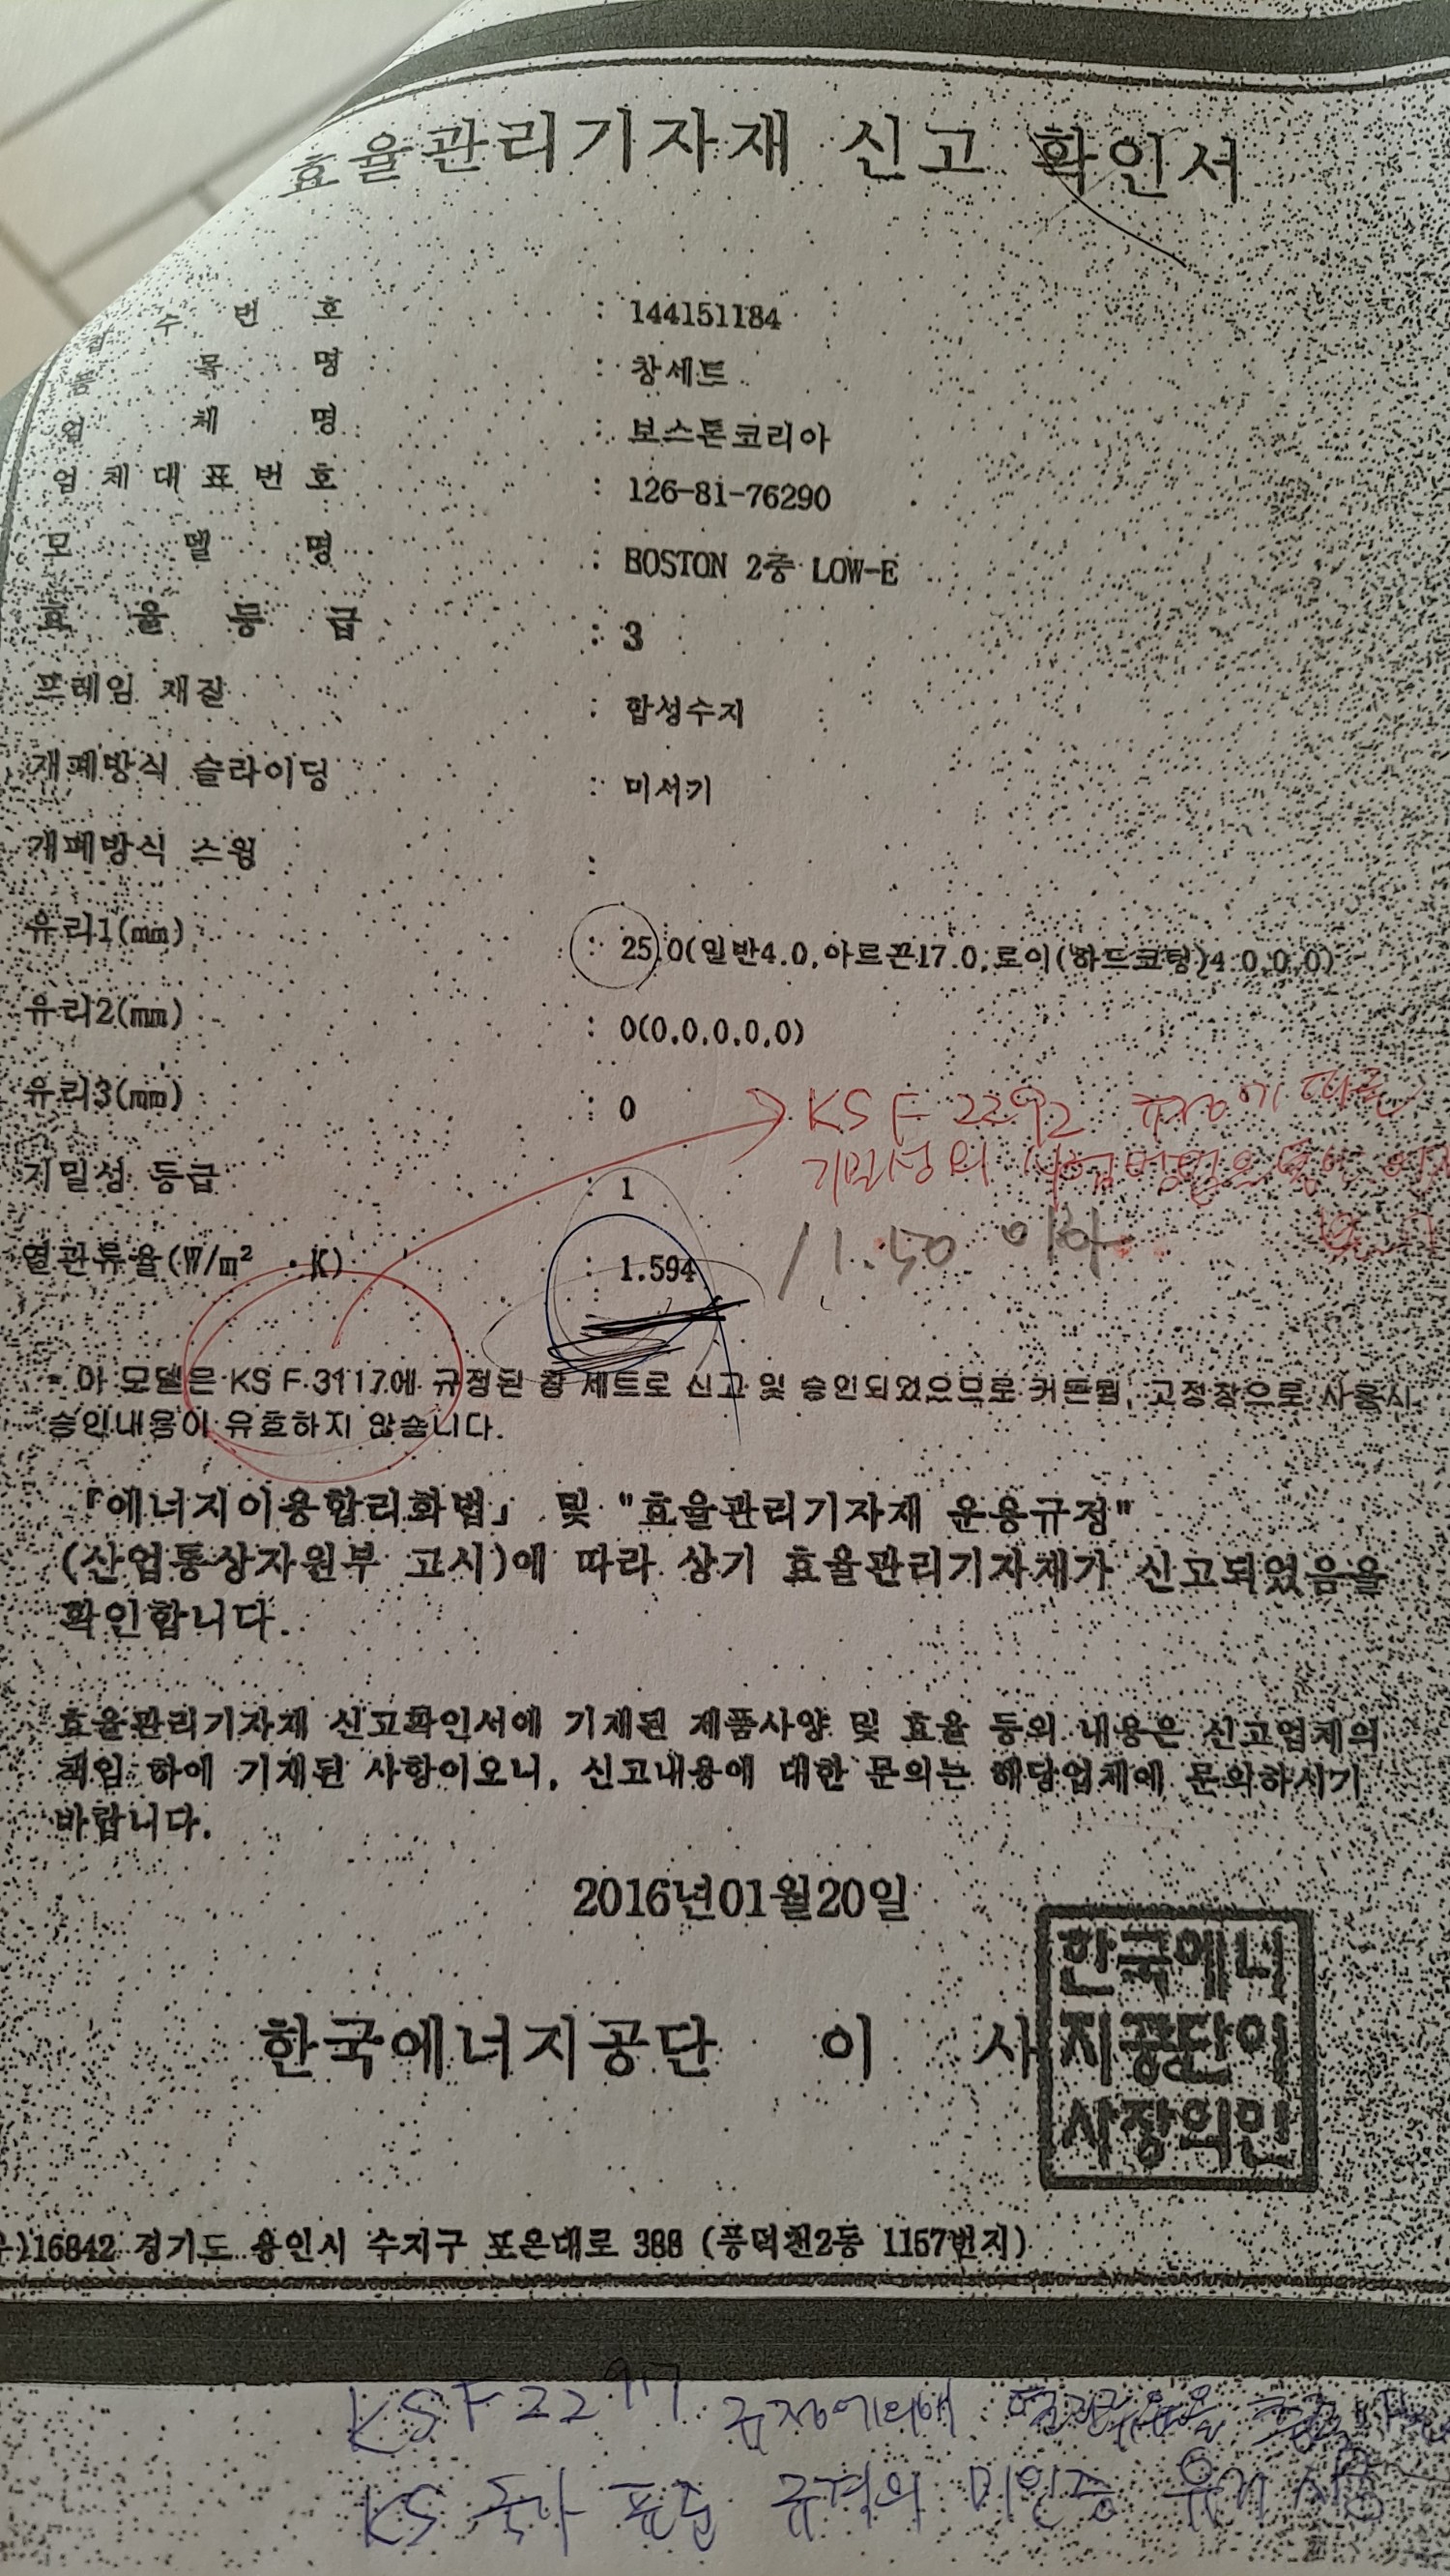 효율관리기자재 신고 확인서
접수번호 : 144151184
품목명 : 창세트
업체명 : 보스톤코리아
업체대표번호 : 126-81-76290
모델명 : BOSTON 2중 LOW-E
효율등급 : 3
프레임 재질 : 합성수지
개폐방식 슬라이딩 : 미서기
개폐방식 스윙 :
유리1(㎜) : 25.0(일반4.0,아르곤17.0,로이(하드코팅)4.0,0,0)
유리2(㎜) : 0(0,0,0,0,0)
유리3(㎜) : 0
KS F 2292 규정에 따른
기밀성의 시험방법
기밀성 등급 : 1
열관류율(W/㎡ ·K) : 1.594 / 1.50 이하
- 이 모델은 KS F 3117에 규정된 창 세트로 신고 및 승인되었으므로 커튼월, 고정창으로 사용시
승인내용이 유효하지 않습니다.
「에너지이용합리화법」 및 "효율관리기자재 운용규정"
(산업통상자원부 고시)에 따라 상기 효율관리기자재가 신고되었음을
확인합니다.
효율관리기자재 신고확인서에 기재된 제품사양 및 효율 등의 내용은 신고업체의
책임 하에 기재된 사항이오니, 신고내용에 대한 문의는 해당업체에 문의하시기
바랍니다.
2016년01월20일
한국에너지공단 이 사
한국에너
지공단이
사장의인
)16842 경기도 용인시 수지구 포은대로 388 (풍덕천2동 1157번지)
KSF 22 규정에의해 열관류율을
KS 국가 표준 규격의 미인증 유리